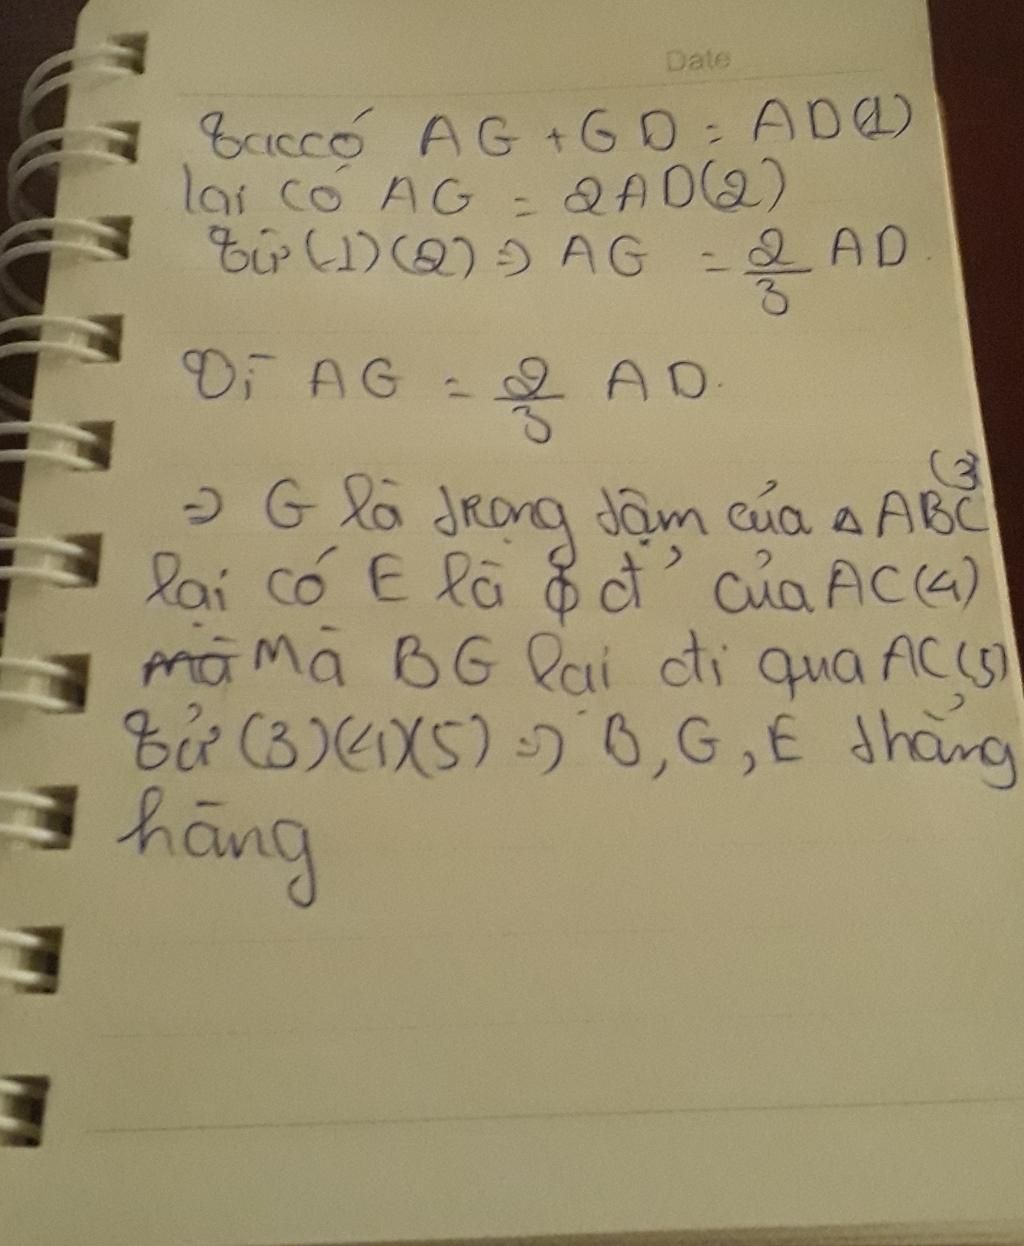 Date
Ta có AG + GD = AD (1)
lại có AG = 2AD (2)
Từ (1) (2) => AG = 2/3 AD.
Vì AG = 2/3 AD.
=> G là trọng tâm của △ ABC (3)
lại có E là đ' của AC (4)
mà Mà BG lại đi qua AC (5)
Từ (3) (4) (5) => B, G, E thẳng
hàng